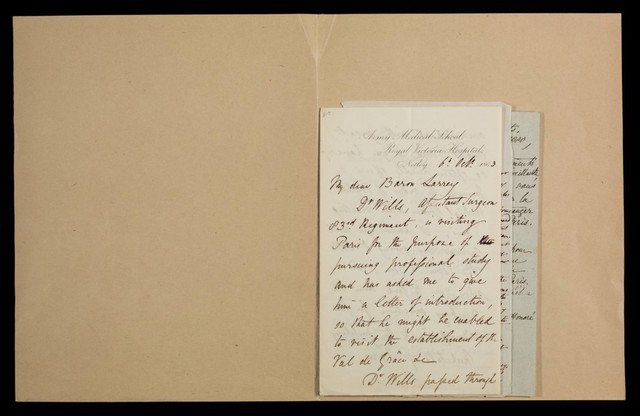 Army Medical School
Royal Victoria Hospital
Netley 6th Oct. 1863
My dear Baron Larrey
Dr Wills, Assistant Surgeon
83rd Regiment, is visiting
Paris for the purpose of
pursuing professional study
and has asked me to give
him a letter of introduction,
so that he might be enabled
to visit the establishment of the
Val de Grâce &c
Dr Wills passed through
vous
la
Paris.
Honoré